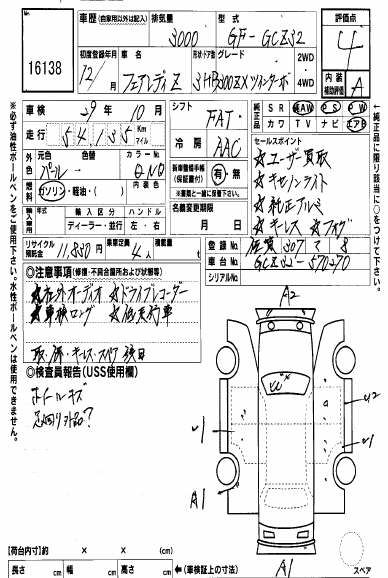 16138
車歴(自家用以外は記入) 排気量 型式 評価点
3000 GF-GCZ32 4
初度登録年月 車名 形状・ドア数 グレード 2WD 内装
12/ フェアレディZ 3HB 300ZXツインターボ 4WD 補助評価 A
車検 29年 10月
シフト FAT
純正品 SR AW PS PW
カワ TV ナビ エアB
走行 54,135 Km マイル
冷房 AAC
セールスポイント
元色 色替 カラーNo.
パール QN0
新車整備手帳(保証書付) 有・無
※車両と一緒に保管下さい。
☆ユーザー買取
☆キセノンライト
☆純正アルミ
☆キーレス ☆フォグ
燃料 ガソリン・軽油・( ) 内装色
名義変更期限
月 日
輸入車用 年式 輸入区分 ハンドル
ディーラー・並行 左・右
リサイクル預託金 11,850円 乗車定員 4人 積載量 t
登録No. 佐賀 307 て 8
車台No. GCZ32-570270
シリアルNo.
◎注意事項(修復・不具合箇所および状態等)
☆社外オーディオ ☆ドライブレコーダー
☆車検ロング ☆低走行車
取・保・キーレス・スペア 後日
◎検査員報告(USS使用欄)
ホイールキズ
足回り外品?
A2
A1
A1
【荷台内寸】 × × (cm)
長さ cm 幅 cm 高さ cm ←(車検証上の寸法)
スペア
※必ず油性ボールペンをご使用下さい。水性ボールペンは使用できません。
*純正品に限り該当に○をつけて下さい。